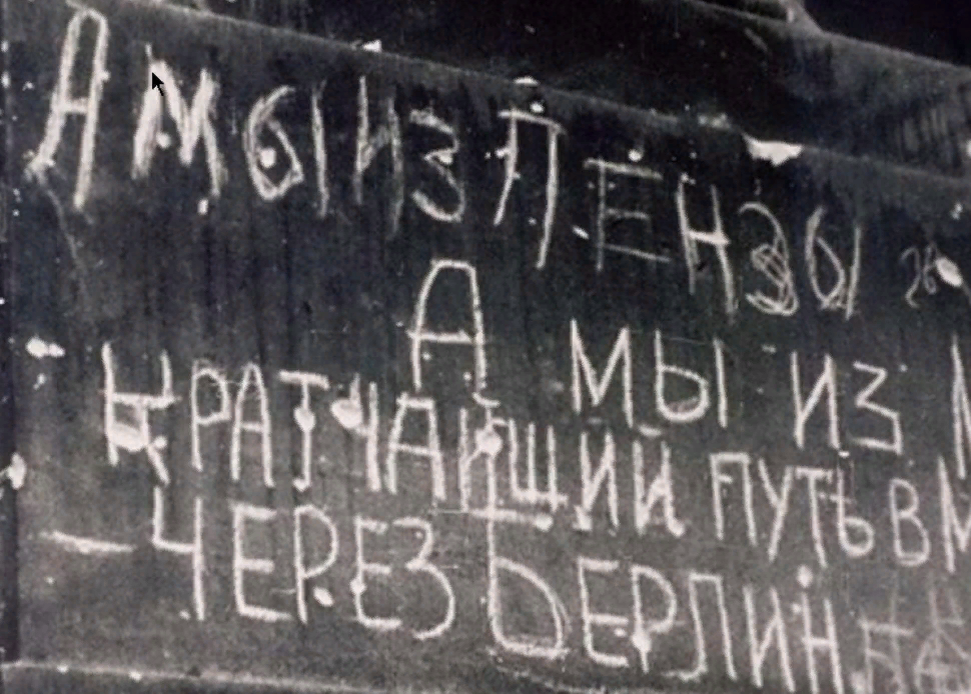 А МЫ ИЗ ПЕНЗЫ
А МЫ ИЗ
КРАТЧАЙШИЙ ПУТЬ В
— ЧЕРЕЗ БЕРЛИН